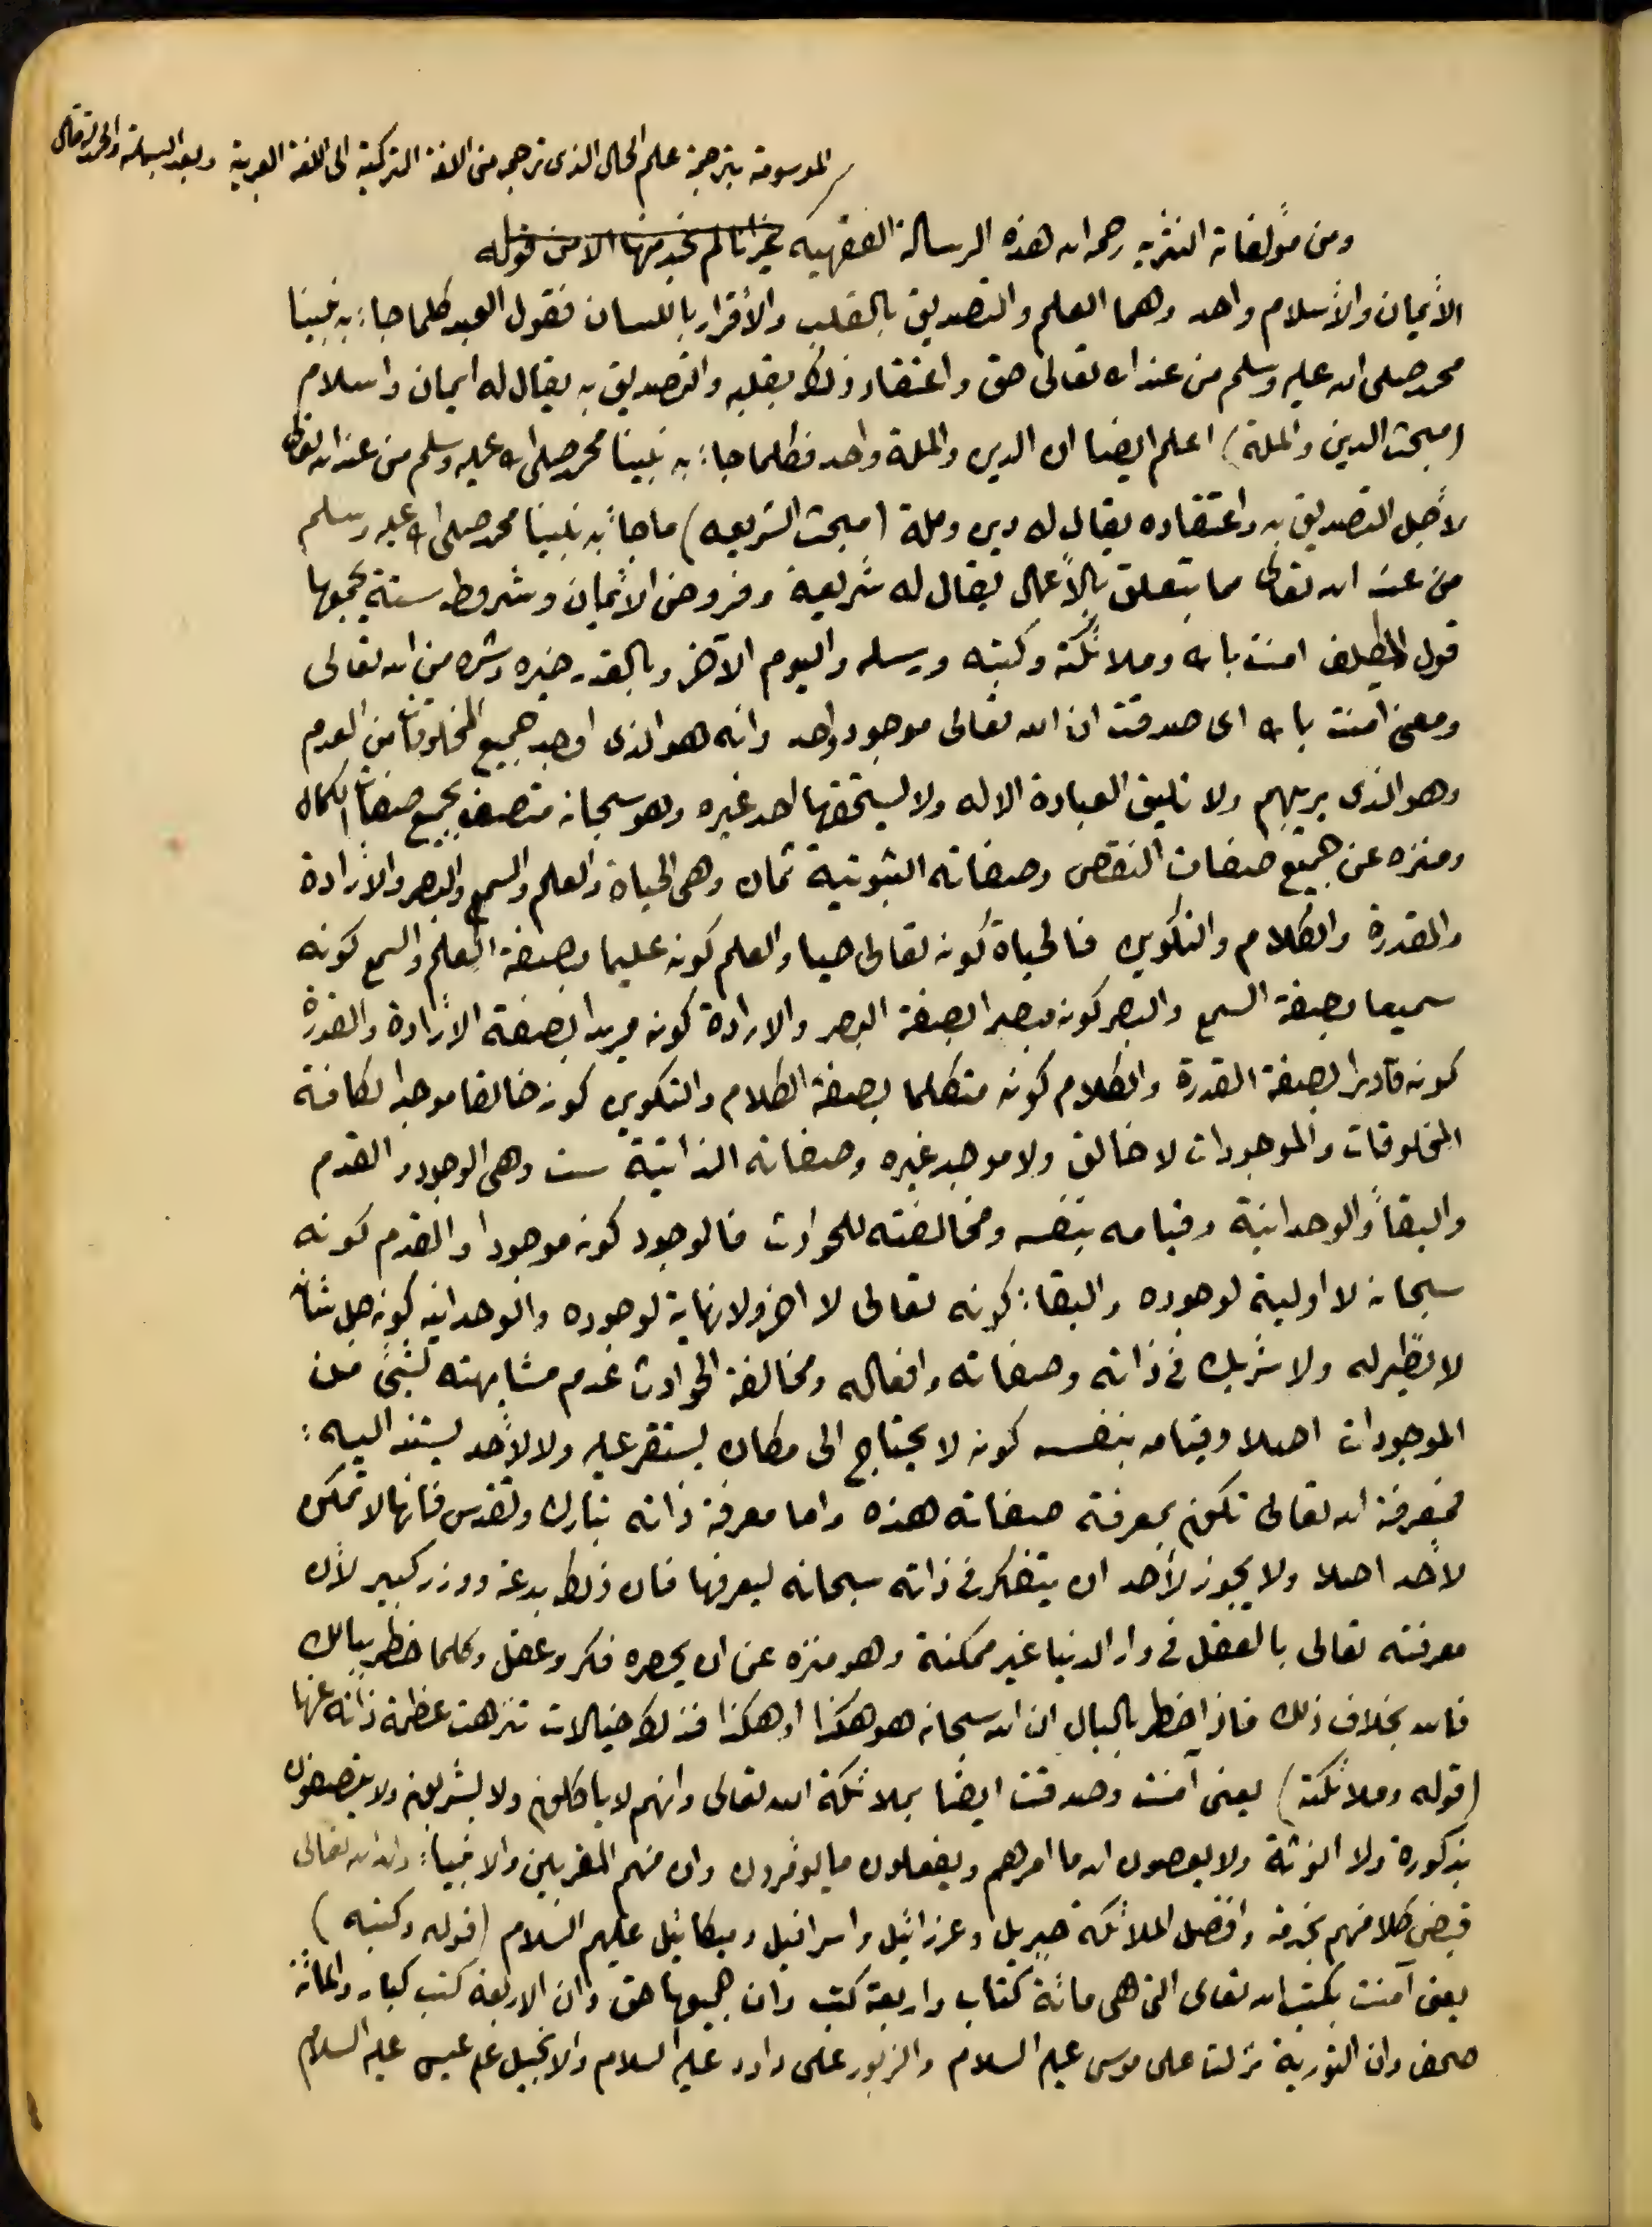 الموسومة بترجمة علم الحال الذى ترجمه من اللغة التركية الى اللغة العربية وبعد البسملة والحمدلة قال
ومن مؤلفاته النثريه رحمه الله هذه الرسالة الفقهيه غير انا لم نجد منها الا من قوله
الأيمان والأسلام واحد وهما العلم والتصديق بالقلب والأقرار باللسان فقول العبد كلما جاء به نبينا
محمد صلى الله عليه وسلم من عند الله تعالى حق واعتقاد ذلك بقلبه والتصديق به يقال له ايمان واسلام
(مبحث الدين والملة) اعلم ايضا ان الدين والملة واحد فكلما جاء به نبينا محمد صلى الله عليه وسلم من عند الله تعالى
لأجل التصديق به واعتقاده يقال له دين وملة (مبحث الشريعه) ماجاء به نبينا محمد صلى الله عليه وسلم
من عند الله تعالى مما يتعلق بالأعمال يقال له شريعة وفروض الأيمان وشروطه ستة يجمعها
قول المكلف امنت بالله وملائكته وكتبه ورسله واليوم الآخر وبالقدر خيره وشره من الله تعالى
ومعنى آمنت بالله اى صدقت ان الله تعالى موجود واحد وانه هو الذى اوجد جميع المخلوقات من العدم
وهو الذى يربيهم ولا تليق العبادة الا له ولا يستحقها احد غيره وهو سبحانه متصف بجميع صفات الكمال
ومنزه عن جميع صفات النقص وصفاته الثبوتية ثمان وهى الحياة والعلم والسمع والبصر والأرادة
والقدرة والكلام والتكوين فالحياة كونه تعالى حيا والعلم كونه عليما بصفة العلم والسمع كونه
سميعا بصفة السمع والبصر كونه مبصرا بصفة البصر والارادة كونه مريدا بصفة الأرادة والقدرة
كونه قادرا بصفة القدرة والكلام كونه متكلما بصفة الكلام والتكوين كونه خالقا موجدا لكافة
المخلوقات والموجودات لا خالق ولا موجد غيره وصفاته الذاتية ست وهى الوجود والقدم
والبقأ والوحدانية وقيامه بنفسه ومخالفته للحوادث فالوجود كونه موجودا والقدم كونه
سبحانه لا اولية لوجوده والبقاء كونه تعالى لا اخر ولا نهاية لوجوده والوحدانيه كونه جل شانه
لا نظير له ولا شريك فى ذاته وصفاته وافعاله ومخالفة الحوادث عدم مشابهته لشئ من
الموجودات اصلا وقيامه بنفسه كونه لا يحتاج الى مكان يستقر عليه ولا لأحد يستند اليه :
فمعرفة الله تعالى تكون بمعرفة صفاته هذه واما معرفة ذاته تبارك وتقدس فانها لا تمكن
لأحد اصلا ولا يجوز لأحد ان يتفكر فى ذاته سبحانه ليعرفها فان ذلك بدعة ووزر كبير لأن
معرفته تعالى بالعقل فى دار الدنيا غير ممكنة وهو منزه عن ان يحصره فكر وعقل وكلما خطر ببالك
فالله بخلاف ذلك فاذا خطر بالبال ان الله سبحانه هو هكذا او هكذا فذلك خيالات تنزهت عظمة ذاته عنها
(قوله وملائكته) يعنى آمنت وصدقت ايضا بملائكة الله تعالى وانهم لا ياكلون ولا يشربون ولا يتصفون
بذكورة ولا انوثة ولا يعصون الله ما امرهم ويفعلون ما يؤمرون وان منهم المقربين والانبياء وان الله تعالى
قيض كلا منهم بخدمة وافضل الملائكة جبريل وعزرائيل واسرافيل وميكائيل عليهم السلام (قوله وكتبه)
يعنى آمنت بكتب الله تعالى التى هى مائة كتاب واربعة كتب وان جميعها حق وان الاربعة كتب كبار والمائة
صحف وان التورية نزلت على موسى عليه السلام والزبور على داود عليه السلام والانجيل على عيسى عليه السلام